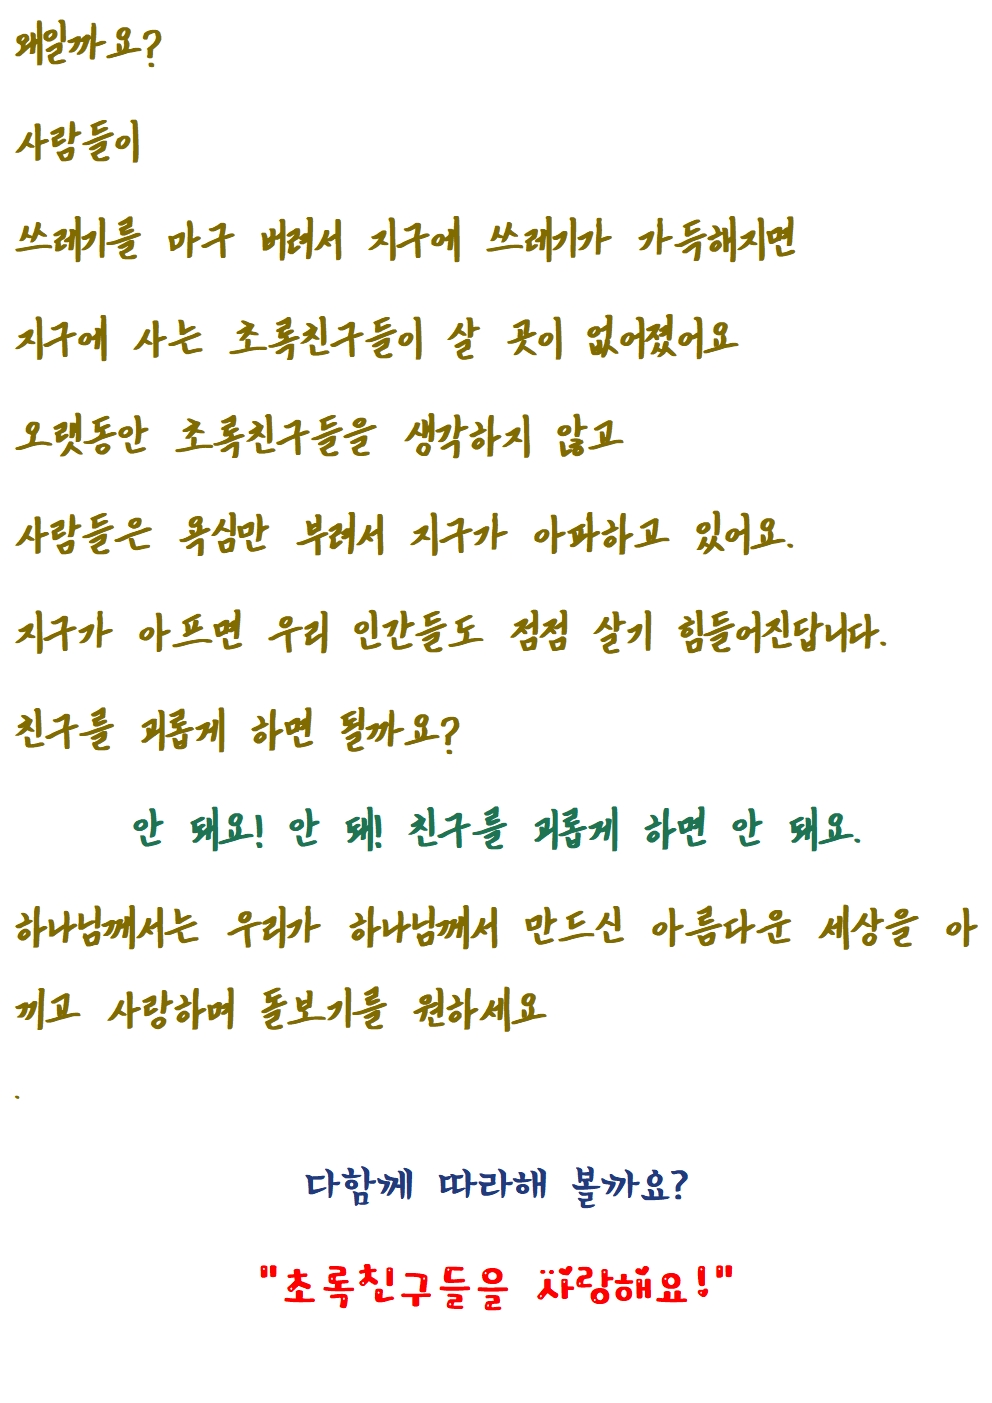 왜일까요?
사람들이
쓰레기를 마구 버려서 지구에 쓰레기가 가득해지면
지구에 사는 초록친구들이 살 곳이 없어졌어요
오랫동안 초록친구들을 생각하지 않고
사람들은 욕심만 부려서 지구가 아파하고 있어요.
지구가 아프면 우리 인간들도 점점 살기 힘들어진답니다.
친구를 괴롭게 하면 될까요?
안 돼요! 안 돼! 친구를 괴롭게 하면 안 돼요.
하나님께서는 우리가 하나님께서 만드신 아름다운 세상을 아
끼고 사랑하며 돌보기를 원하세요
.
다함께 따라해 볼까요?
"초록친구들을 사랑해요!"